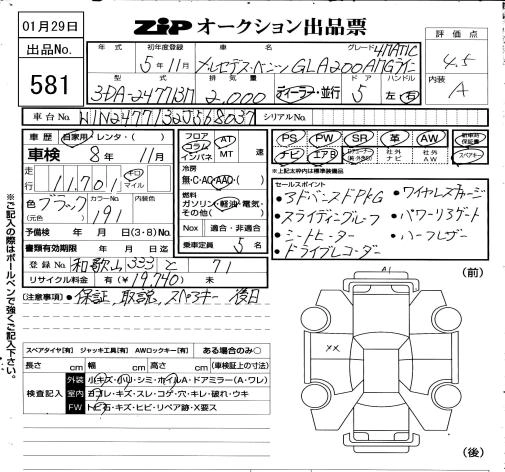 01月29日
ZIP オークション出品票
出品No.
581
年式 初年度登録 車名 グレード 評価点
5年11月 メルセデス・ベンツ GLA200 4MATIC 4.5
型式 排気量 ドア ハンドル 内装
3DA-247713M 2,000 ディーラー・並行 5 左・右 A
車台No. W1N2477132J568037 シリアルNo.
車歴 自家用・レンタ・( )
車検 8年 11月
走行 11,701 キロ マイル
色 ブラック カラーNo. 191 内装色
(元色)
予備検 年 月 日(3・8)No.
書類有効期限 年 月 日迄
登録No. 和歌山 333 と 71
リサイクル料金 有(¥19,740) 未
フロア コラム インパネ AT MT 速
冷房 無・C・AC・AAC・( )
燃料 ガソリン・軽油・電気・その他( )
Nox 適合・非適合
乗車定員 5 名
PS PW SR 革 AW 新車時保証書
ナビ エアB 社外ナビ 社外AW スペアキー
*上記太枠内は標準装備品
セールスポイント
・アドバンスドPKG ・ワイヤレスチャージ
・スライディングルーフ ・パワーリアゲート
・シートヒーター ・ハーフレザー
・ドライブレコーダー
(注意事項) ・保証、取説、スペアキー 後日
※ご記入の際はボールペンで強くご記入下さい。
スペアタイヤ[有] ジャッキ工具[有] AWロックキー[有] ある場合のみ○
長さ cm 幅 cm 高さ cm (車検証上の寸法)
検査記入
外装 小キズ・小凹・シミ・ホイルA・ドアミラー(A・ワレ)
室内 ヨゴレ・キズ・スレ・コゲ・穴・キレ・破れ・ウキ
FW トビ石・キズ・ヒビ・リペア跡・X要ス
(前)
A1
××
(後)